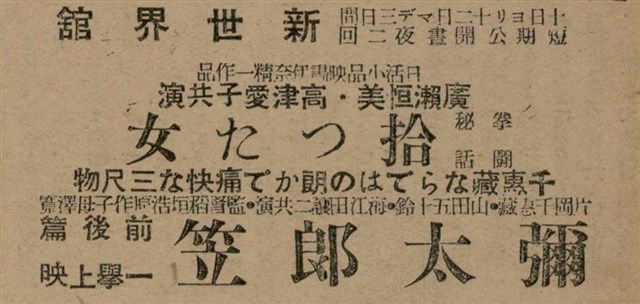 十日ヨリ十二日マデ三日間
短期公開晝夜二回
新世界館
日活小品映画伊奈精一作品
廣瀬恒美・高津愛子共演
拳鬪
秘話
拾つた女
千惠藏ならではの朗かで痛快な三尺物
片岡千惠藏・山田五十鈴・海江田讓二共演・監督稻垣浩原作子母澤寛
彌太郎笠
前後篇
一擧上映